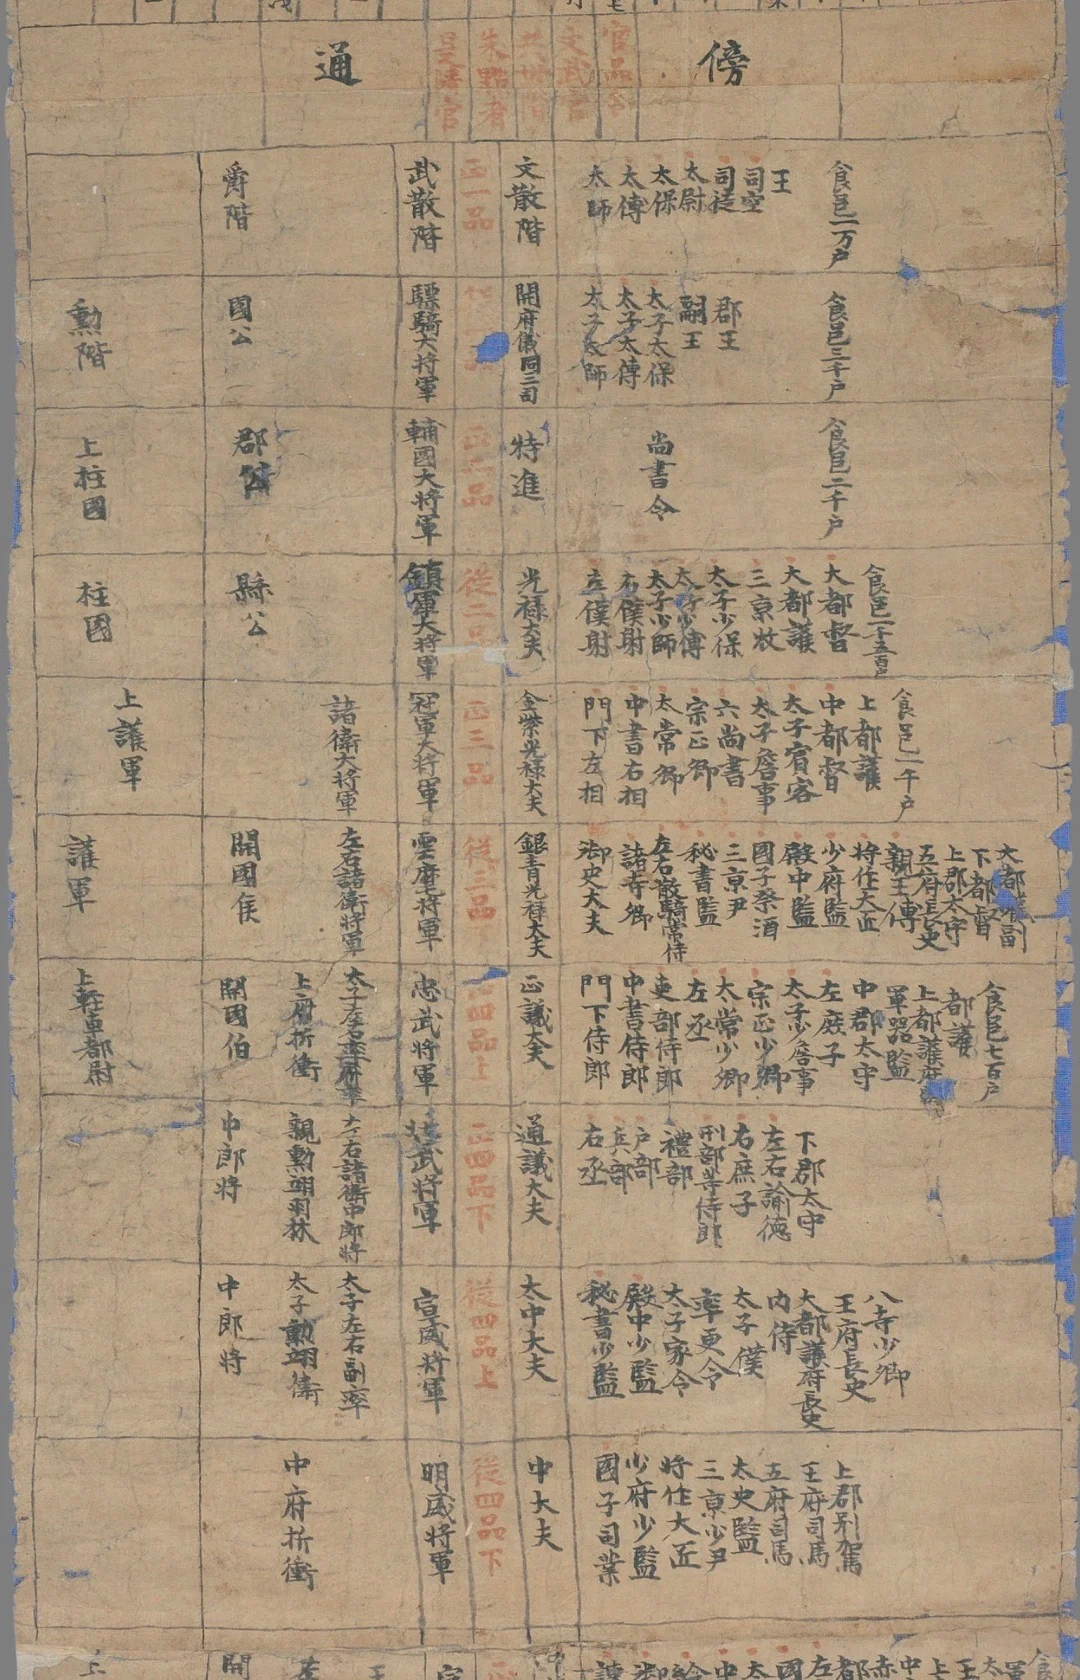 傍通
官品令
文武官
共卅階
朱點者
是清官
爵階
武散階
正一品
文散階
太師
太傅
太保
太尉
司徒
司空
王
食邑二万户
勳階
國公
驃騎大将軍
開府儀同三司
太子太師
太子太傅
太子太保
嗣王
郡王
食邑三千户
上柱國
郡公
輔國大将軍
正二品
特進
尚書令
食邑二千户
柱國
縣公
鎮軍大将軍
從二品
光禄大夫
左僕射
右僕射
太子少師
太子少傅
太子少保
三京牧
大都護
大都督
食邑一千五百户
上護軍
諸衛大将軍
冠軍大将軍
正三品
金紫光禄大夫
門下左相
中書右相
太常卿
宗正卿
六尚書
太子詹事
太子賓客
中都督
上都護
食邑一千户
護軍
開國侯
左右諸衛将軍
雲麾将軍
從三品
銀青光禄大夫
御史大夫
諸寺卿
左右散騎常侍
秘書監
三京尹
國子祭酒
殿中監
少府監
将作大匠
親王傅
五府長史
上郡太守
下都督
大都護副
上軽車都尉
開國伯
上府折衝
太子左右率府率
忠武将軍
正四品上
正議大夫
門下侍郎
中書侍郎
吏部侍郎
左丞
太常少卿
宗正少卿
太子少詹事
左庶子
中郡太守
軍器監
上都護府
都護
食邑七百户
中郎将
親勳翊羽林
左右諸衛中郎将
壮武将軍
正四品下
通議大夫
右丞
兵部
户部
禮部
刑部等侍郎
右庶子
左右諭德
下郡太守
中郎将
太子勳翊衛
太子左右副率
宣威将軍
從四品上
太中大夫
秘書少監
殿中少監
太子家令
率更令
太子僕
内侍
大都護府長史
王府長史
八寺少卿
中府折衝
明威将軍
從四品下
中大夫
國子司業
少府少監
将作大匠
三京少尹
太史監
五府司馬
王府司馬
上郡别駕